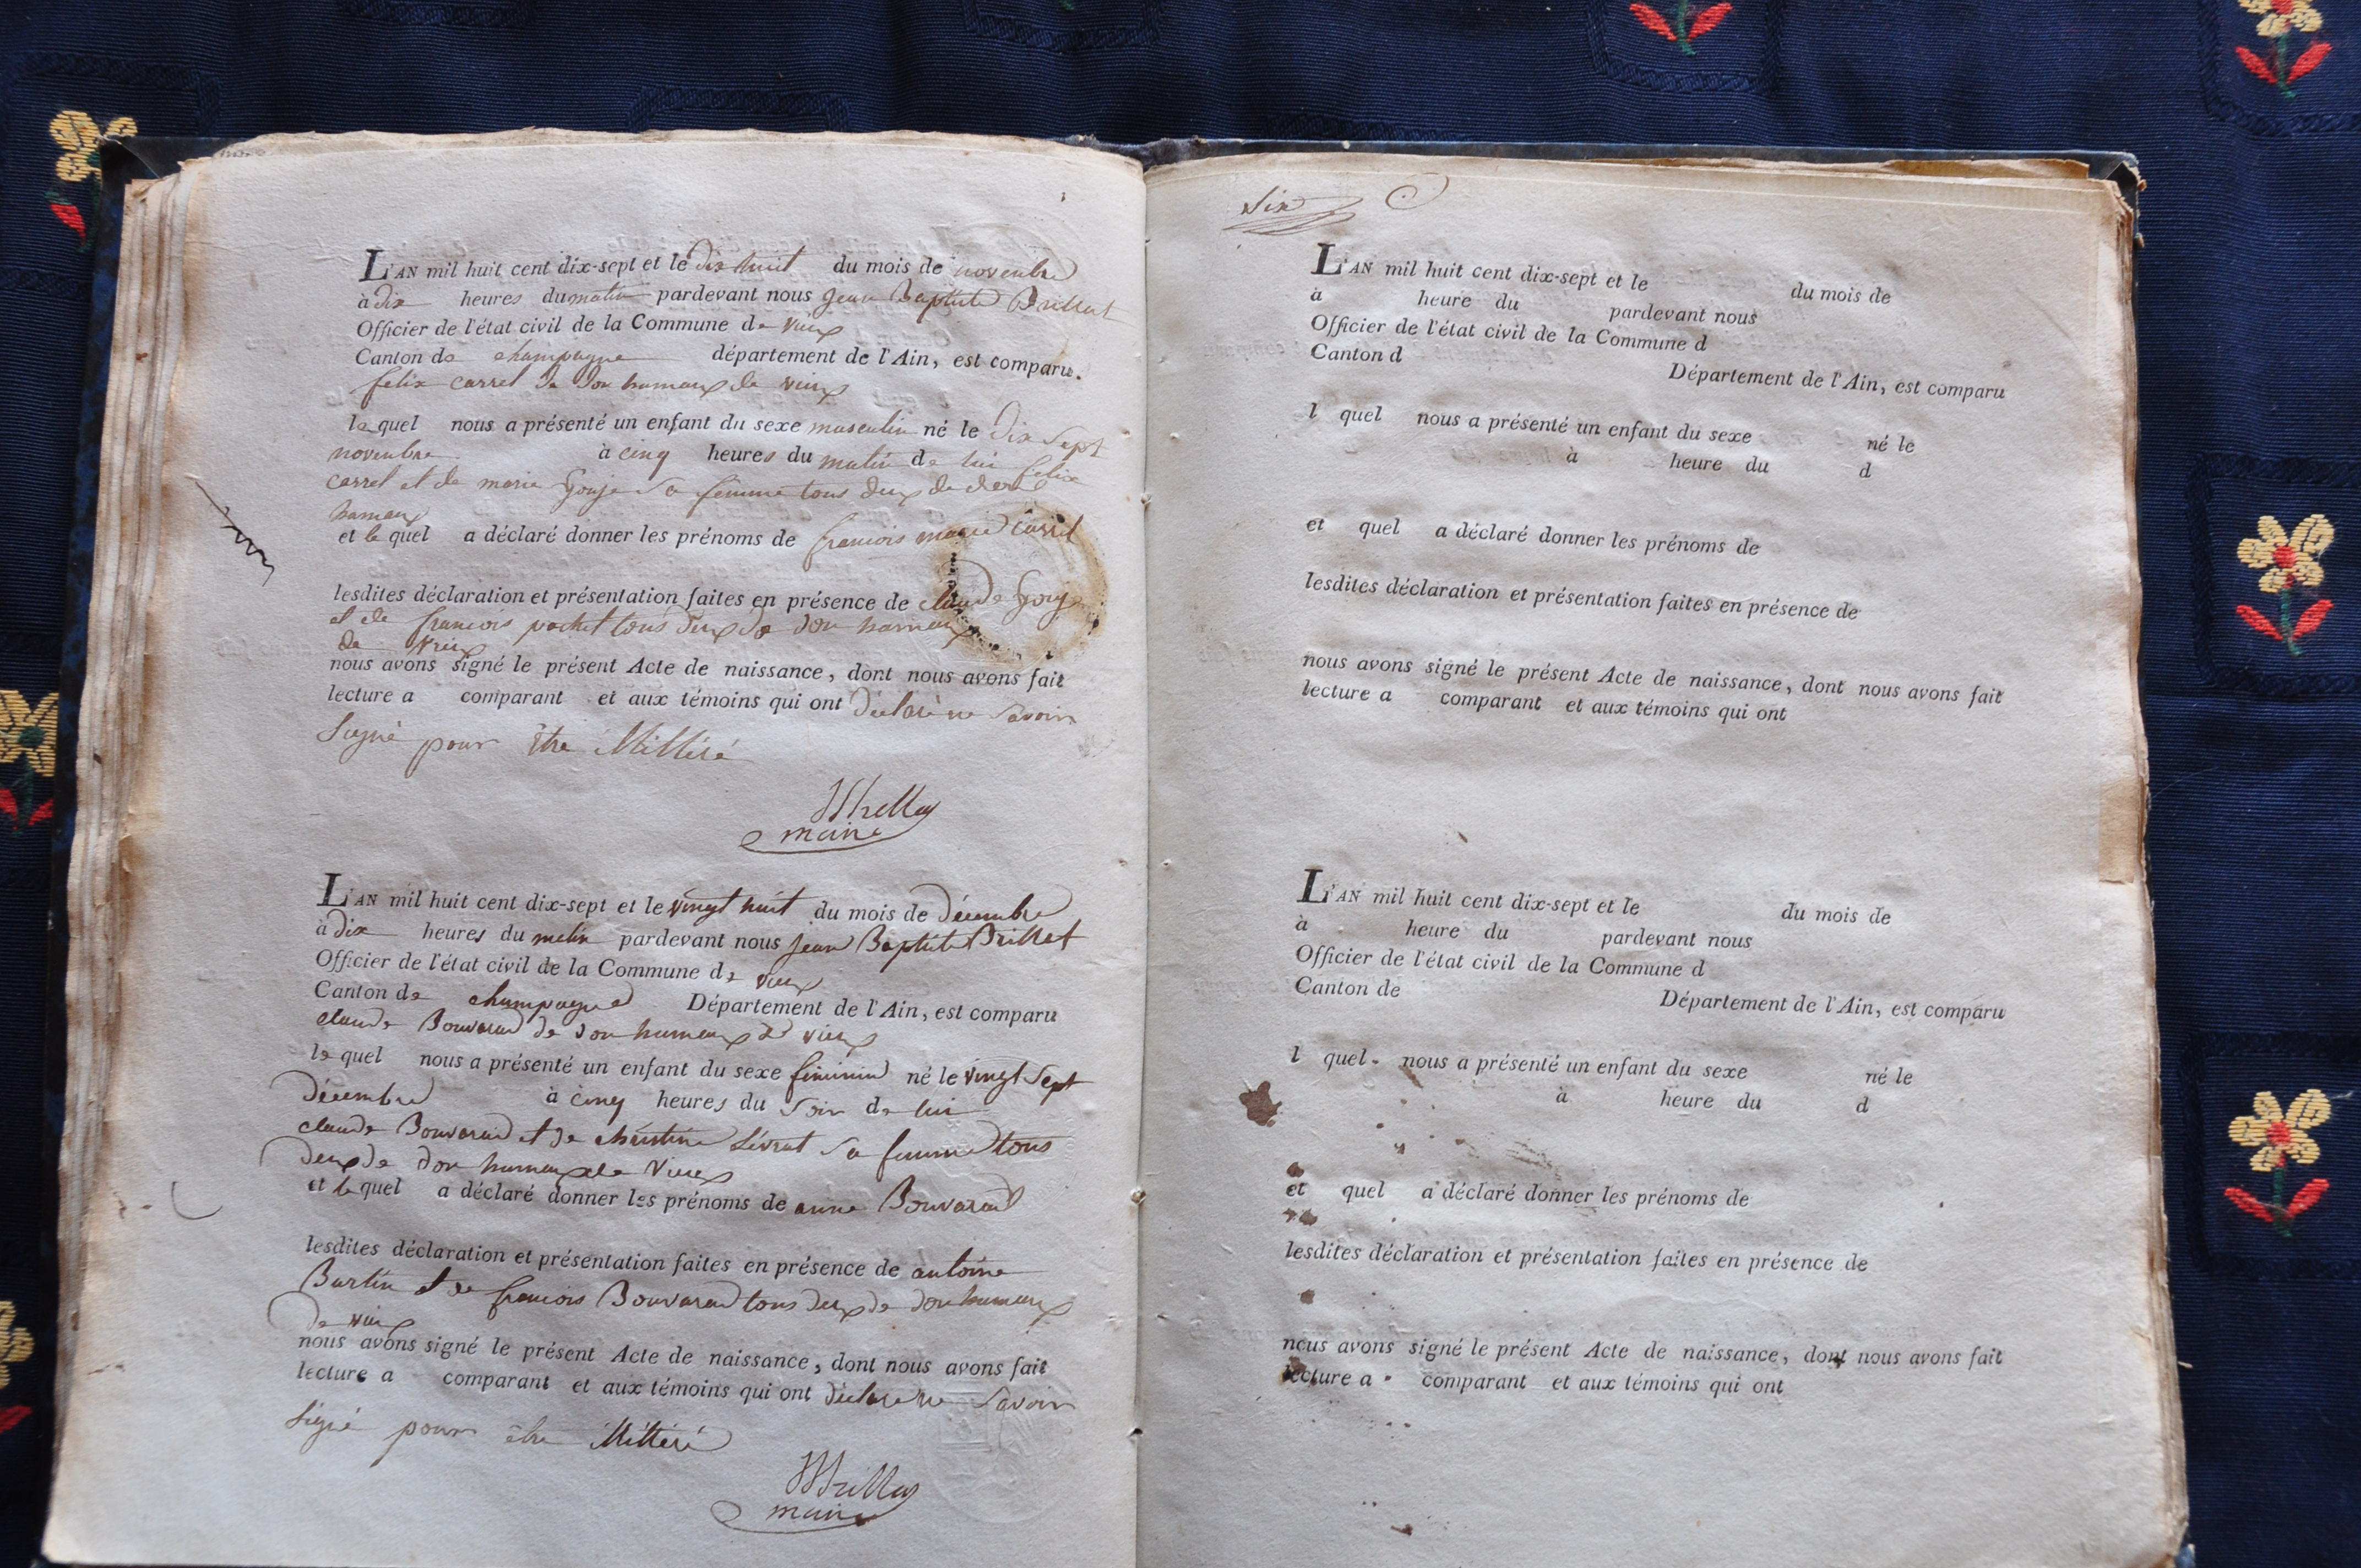 L'AN mil huit cent dix-sept et le dix huit du mois de novembre
à dix heures du matin pardevant nous jean Baptiste Brillat
Officier de l'état civil de la Commune de vieux
Canton de champagne département de l'Ain, est comparu.
felix carrel de don hameaux de vieux
lequel nous a présenté un enfant du sexe masculin né le dix sept
novembre à cinq heures du matin de lui felix
carrel et de marie gouje sa femme tous deux de
hameaux
et lequel a déclaré donner les prénoms de francois marie carrel
lesdites déclaration et présentation faites en présence de claude
et de francois pochet tous deux de don hameaux
de vieux
nous avons signé le présent Acte de naissance, dont nous avons fait
lecture a comparant et aux témoins qui ont déclaré ne savoir
signé pour être illitéré
maire
L'AN mil huit cent dix-sept et le vingt huit du mois de décembre
à dix heures du matin pardevant nous jean Baptiste Brillat
Officier de l'état civil de la Commune de vieux
Canton de champagne Département de l'Ain, est comparu
claude Bonvarand de don hameaux de vieux
lequel nous a présenté un enfant du sexe feminin né le vingt sept
décembre à cinq heures du soir de lui
claude Bonvarand et de christine Sévrat sa femme tous
deux de don hameaux de vieux
et lequel a déclaré donner les prénoms de anne Bonvarand
lesdites déclaration et présentation faites en présence de antoine
Burtin et de francois Bonvarand tous deux de don hameaux
de vieux
nous avons signé le présent Acte de naissance, dont nous avons fait
lecture a comparant et aux témoins qui ont déclaré ne savoir
signé pour être illitéré
maire
six
L'AN mil huit cent dix-sept et le du mois de
à heure du pardevant nous
Officier de l'état civil de la Commune d
Canton d Département de l'Ain, est comparu
l quel nous a présenté un enfant du sexe né le
à heure du d
et quel a déclaré donner les prénoms de
lesdites déclaration et présentation faites en présence de
nous avons signé le présent Acte de naissance, dont nous avons fait
lecture a comparant et aux témoins qui ont
L'AN mil huit cent dix-sept et le du mois de
à heure du pardevant nous
Officier de l'état civil de la Commune d
Canton de Département de l'Ain, est comparu
l quel nous a présenté un enfant du sexe né le
à heure du d
et quel a déclaré donner les prénoms de
lesdites déclaration et présentation faites en présence de
nous avons signé le présent Acte de naissance, dont nous avons fait
lecture a comparant et aux témoins qui ont